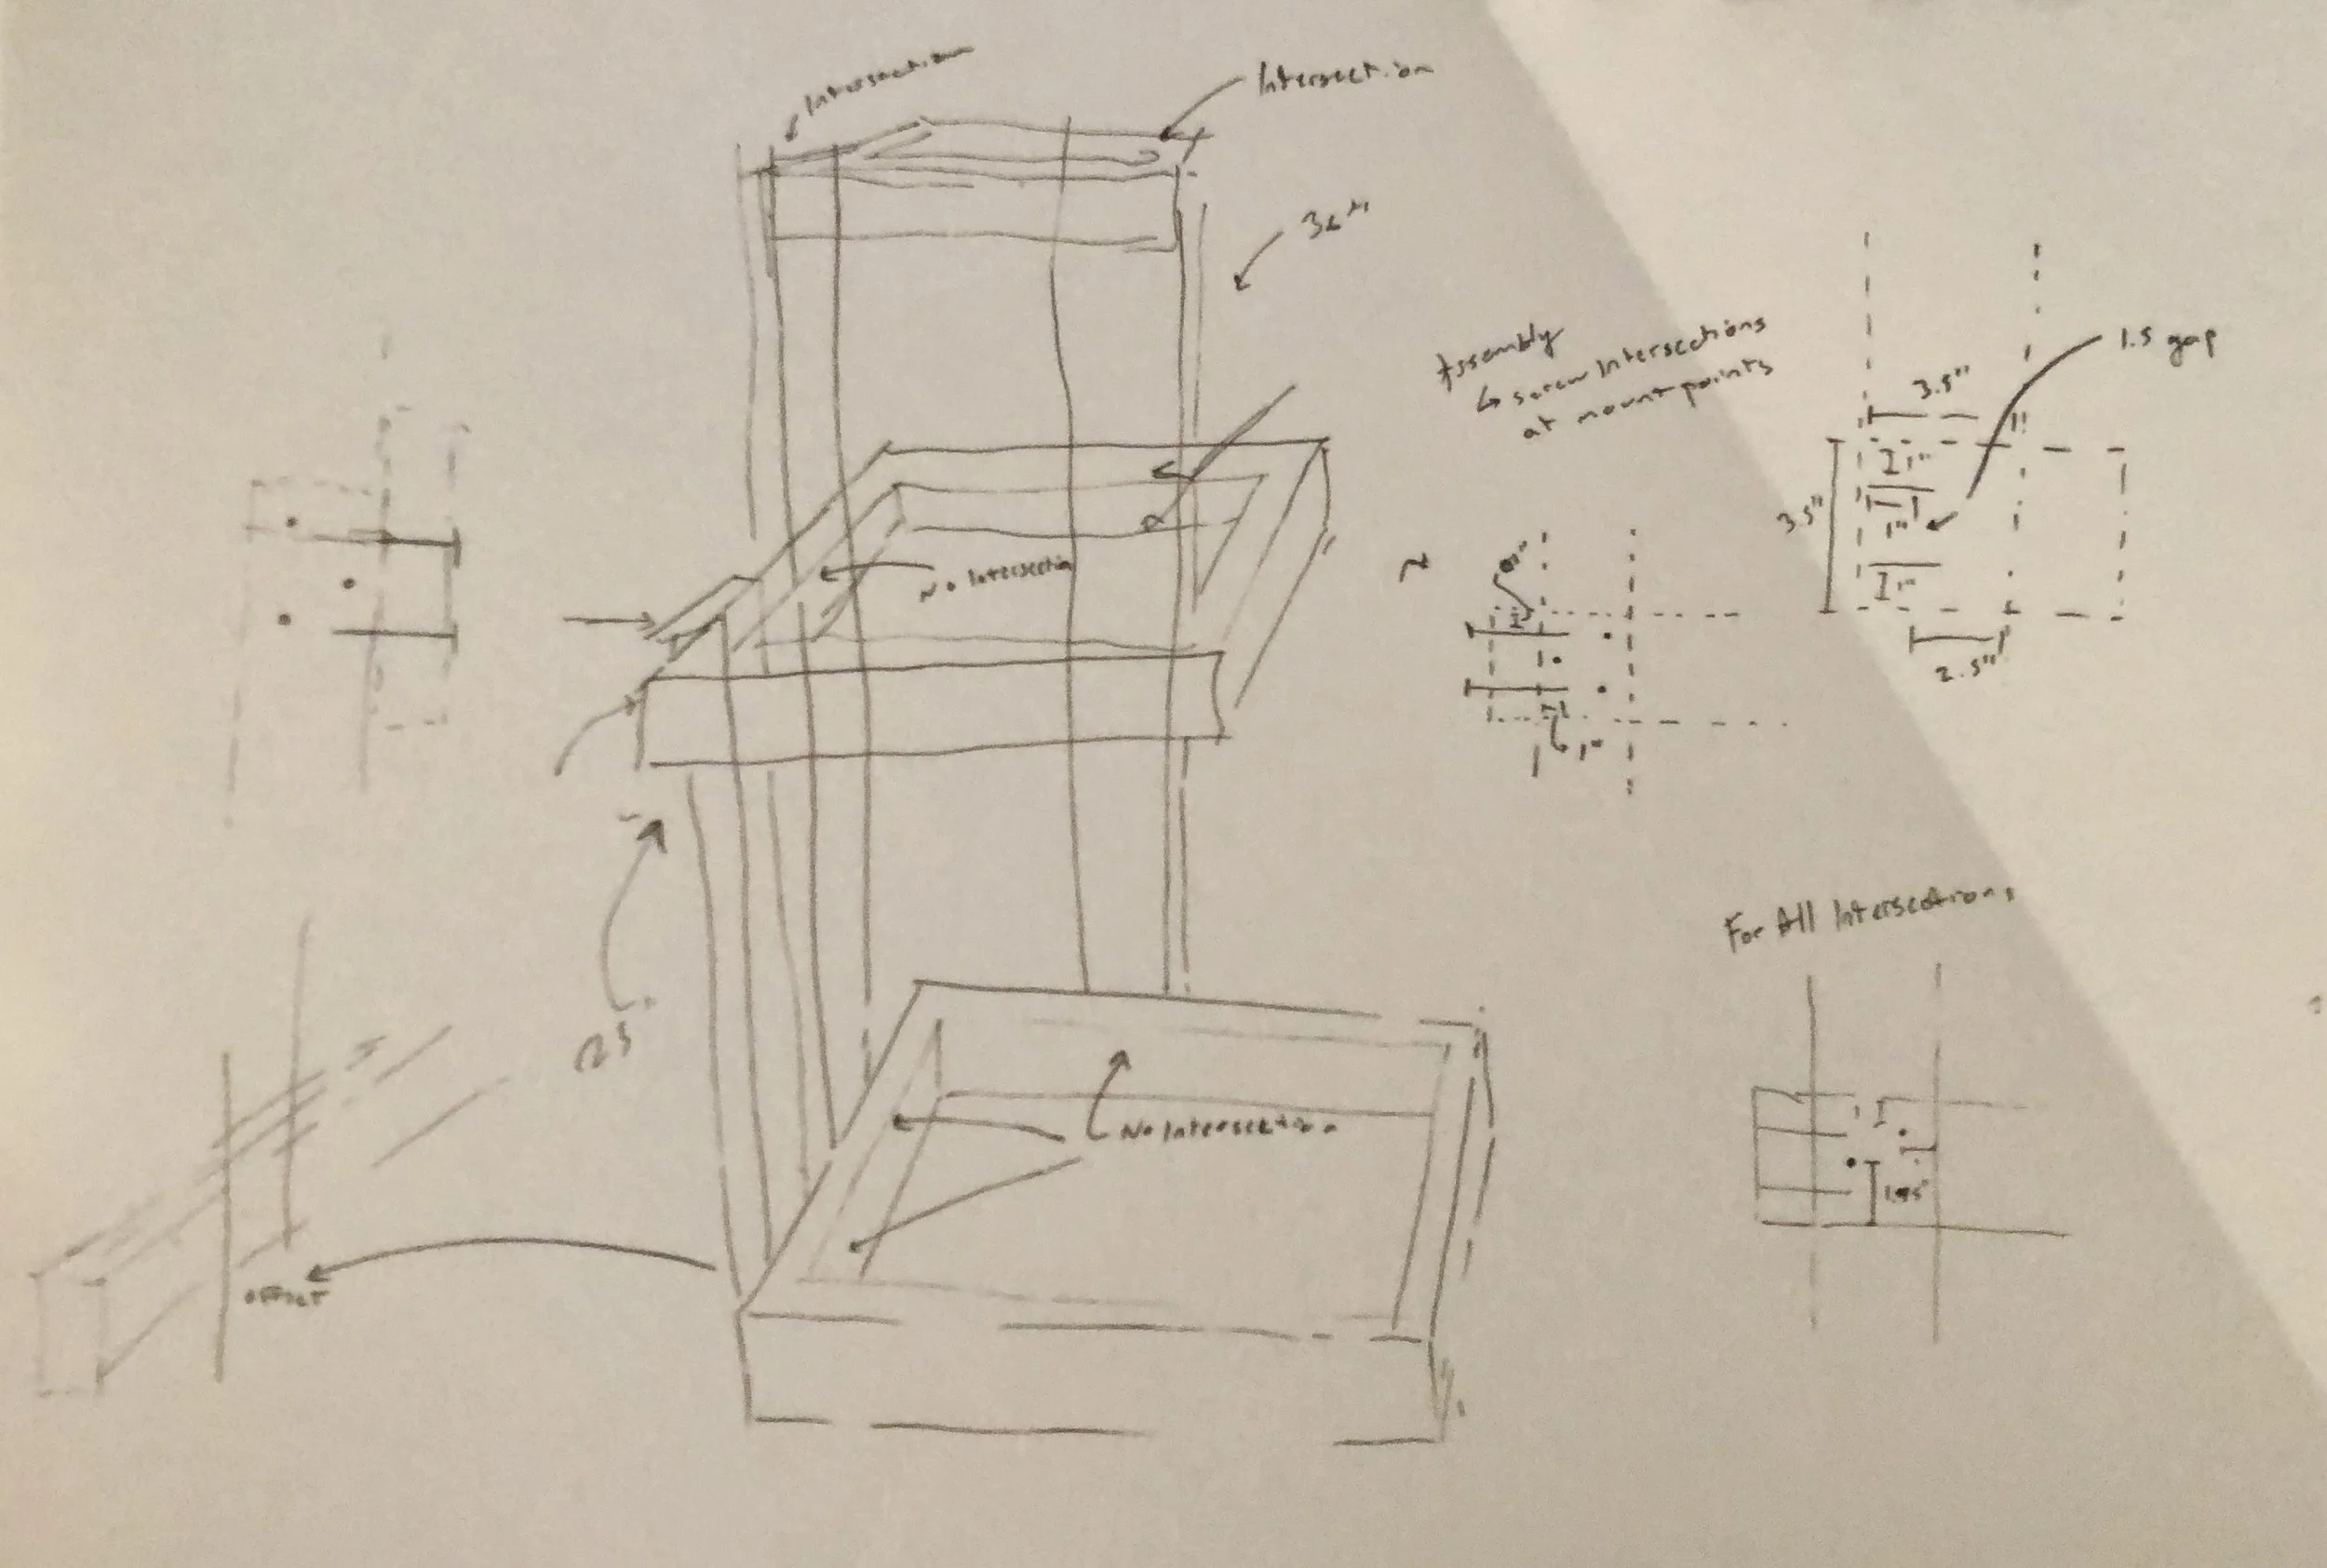 Intersection
Intersection
36"
Assembly
↳ screw Intersections
at mount points
1.5 gap
3.5"
1"
3.5"
1"
1"
2.5"
No Intersection
1"
25"
For All Intersections
No Intersection
offset